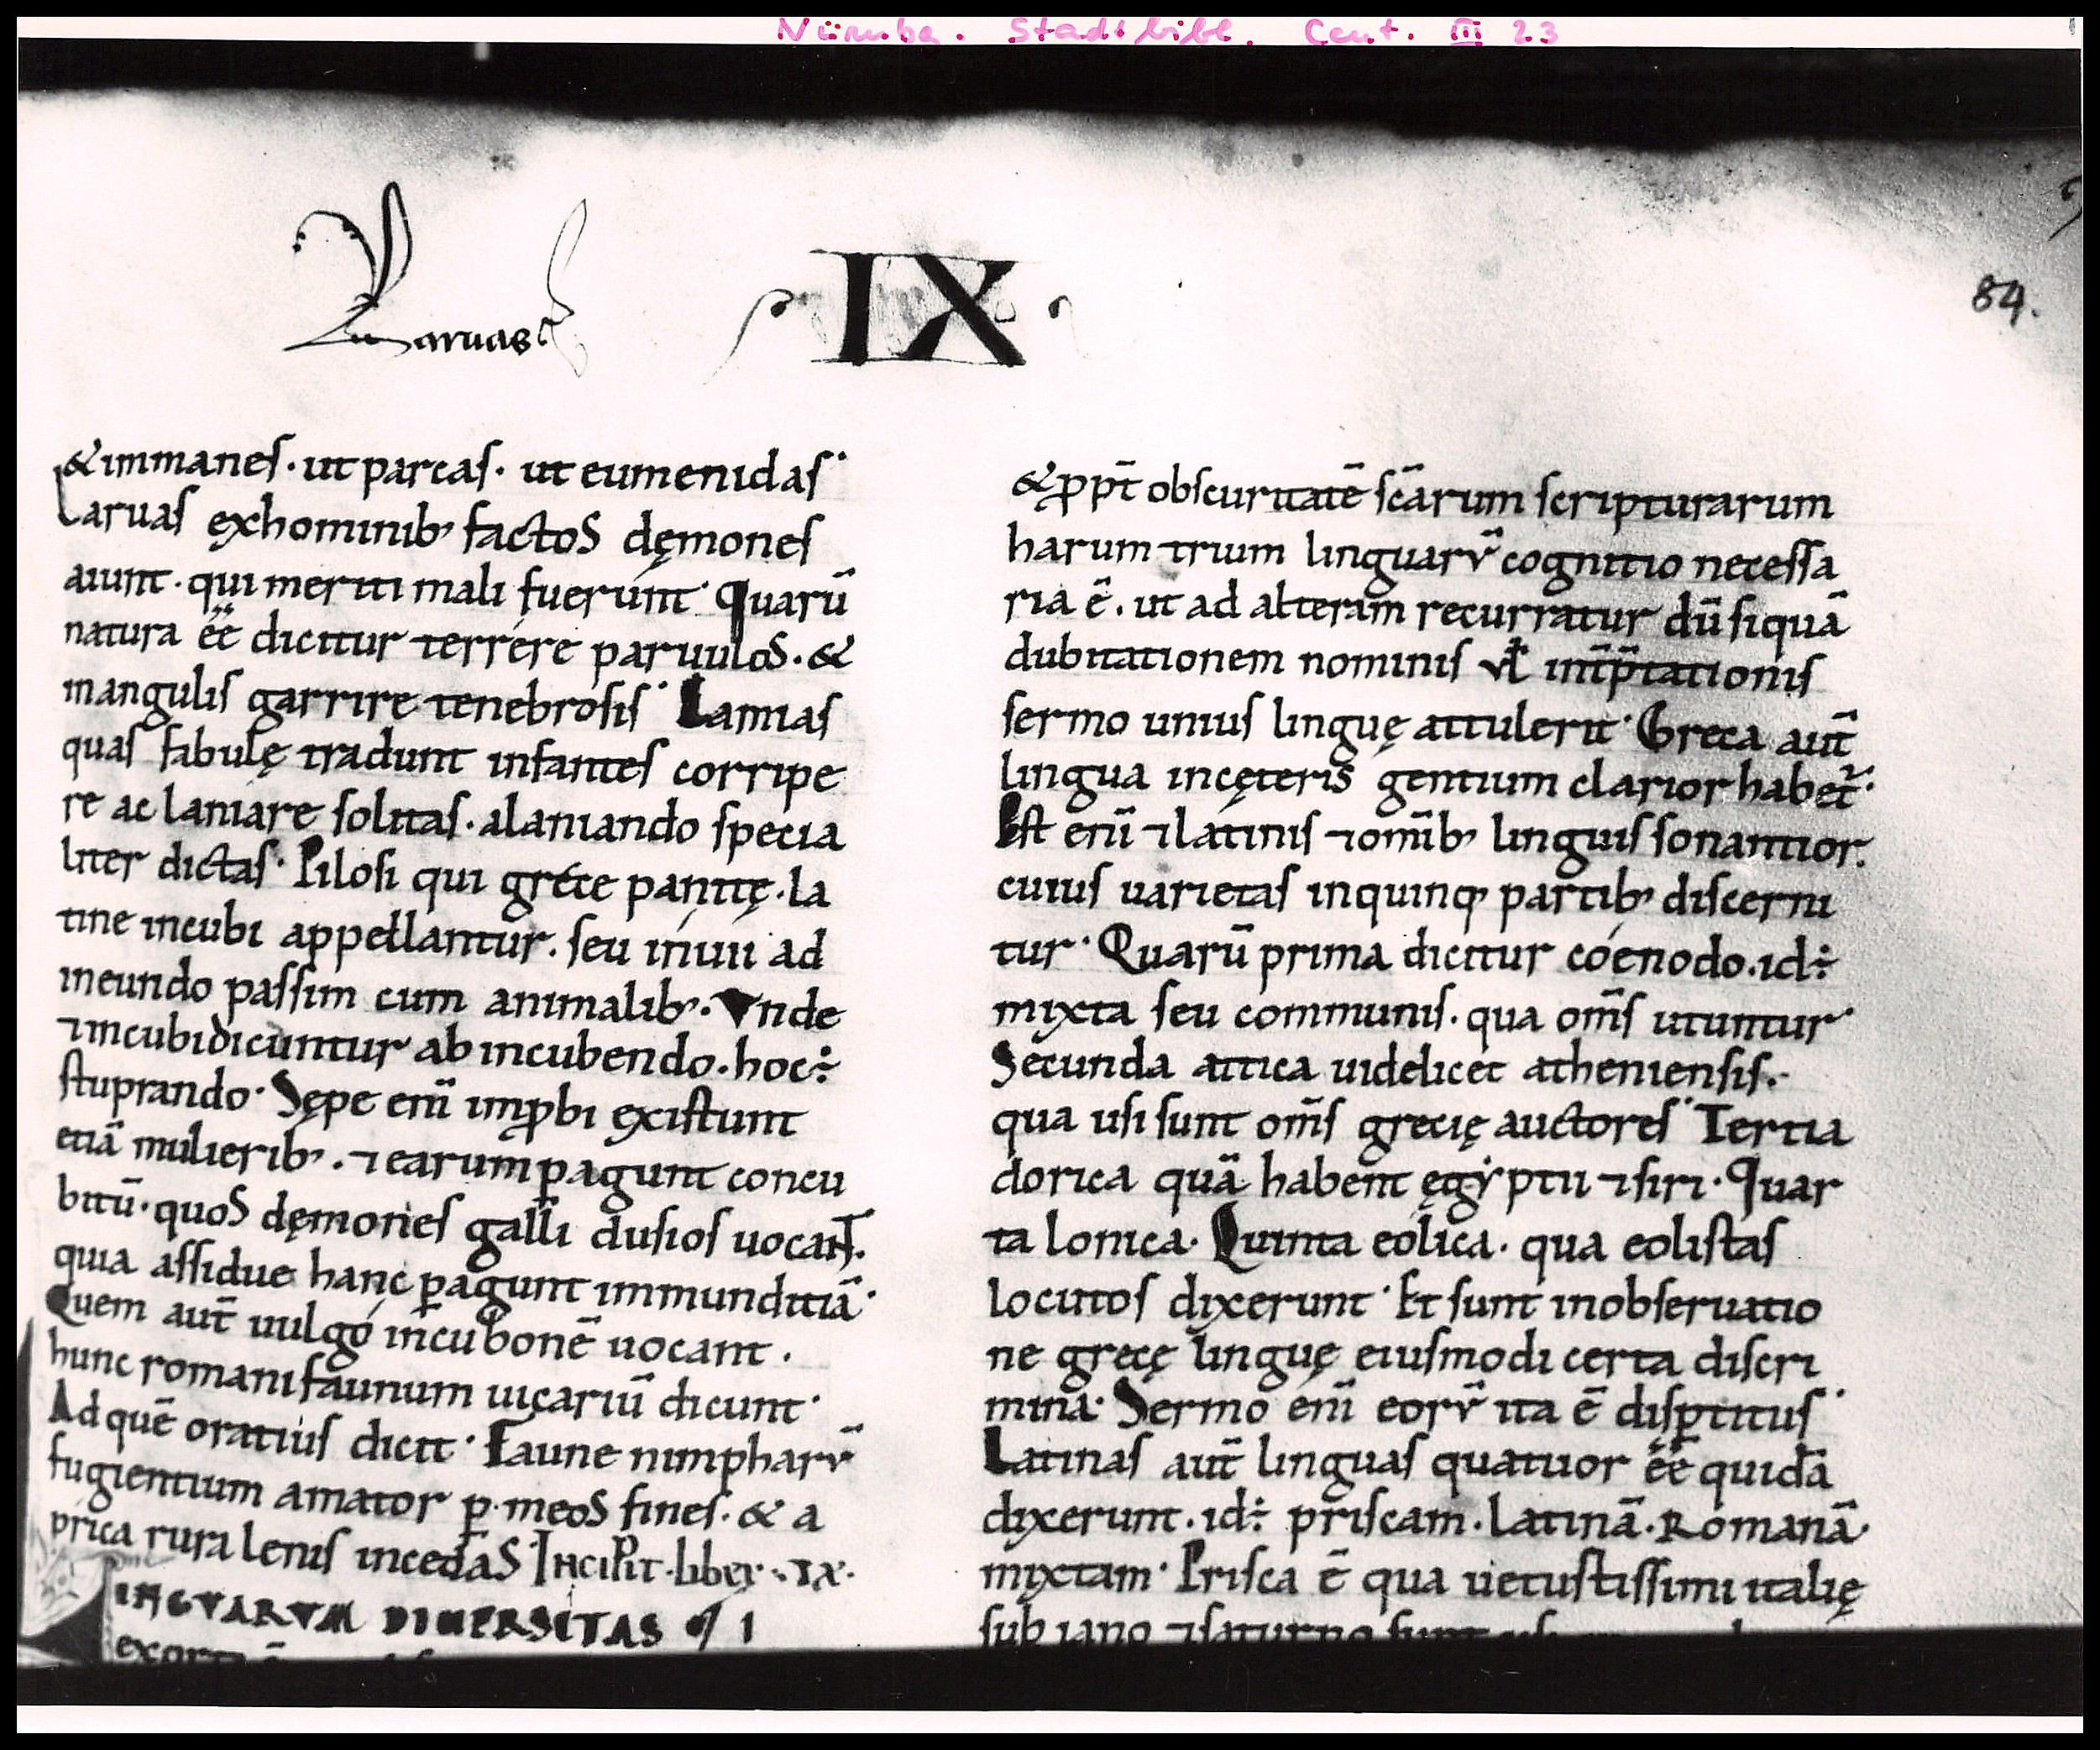 Nürnbg. Stadtbibl. Cent. III 23
Laruas
·IX·
84.
&immanes·ut parcas· ut eumenidas·
Laruas exhominib; factoS dęmones
aiunt·qui meriti mali fuerunt· Quarū
natura ēē dicitur terrere paruuloS·&
inangulis garrire tenebrosis· Lamias
quas fabulę tradunt infantes corripe
re ac laniare solitas·alaniando specia
liter dictas· Pilosi qui gręce panitę·la
tine incubi appellantur·seu inuii ad
ineundo passim cum animalib;·Vnde
⁊incubidicuntur ab incubendo·hoc÷
stuprando· Sępe enī imꝓbi existunt
etiā mulierib;·⁊earumꝑagunt concu
bitū·quoS dęmones galli dusios uocaNT·
quia assidue hanc ꝑagunt immunditiā·
Quem aut̄ uulgo incubonē uocant·
hunc romanifaunum uicariū dicunt·
Adquē oratius dicit· Faune nimpharū
fugientium amator ꝑ·meoS fines·& a
prica rura lenis incedaS INCIPIT·liber·IX·
INGVARVM DIUERSITAS
&ꝓpt̄ obscuritatē scārum scripturarum
harum trium linguarū cognitio necessa
ria ē·ut ad alteram recurratur dū siquā
dubitationem nominis ul̄ int̄p̄tationis
sermo unius linguę attulerit· Greca aut̄
lingua incęteris gentium clarior habet̄·
Est enī ⁊latinis ⁊omīb; linguis sonantior·
cuius uarietas inquinq; partib; discerni
tur· Quarū prima dicitur coenodo·id÷
mixta seu communis·qua om̄s utuntur·
Secunda attica uidelicet atheniensis·
qua usi sunt om̄s grecię auctores· Tertia
dorica quā habent ęgẏptii ⁊siri· Quar
ta Ionica· Quinta eolica· qua eolistas
locutos dixerunt· Et sunt inobseruatio
ne grecę linguę eiusmodi certa discri
mina· Sermo enī eorū ita ē disꝑtitus·
Latinas aut̄ linguas quatuor ēē quidā
dixerunt·id÷ priscam·Latinā·Romanā·
mixtam· Prisca ē qua uetustissimi italię
sub iano ⁊saturno sunt